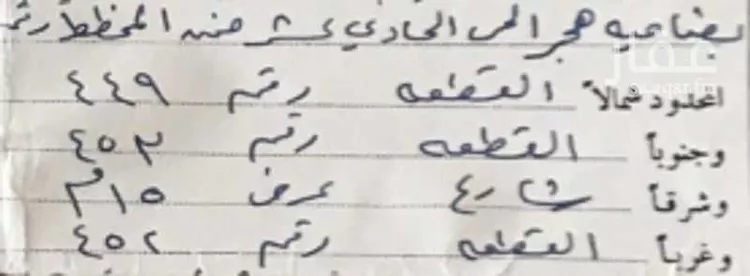 بضاحيه هجر الحي الحادي عشر من المخطط رقم
الحدود شمالاً القطعه رقم ٤٤٩
وجنوباً القطعه رقم ٤٥٣
وشرقاً شارع عرض ١٥م
وغرباً القطعه رقم ٤٥٢
عقار